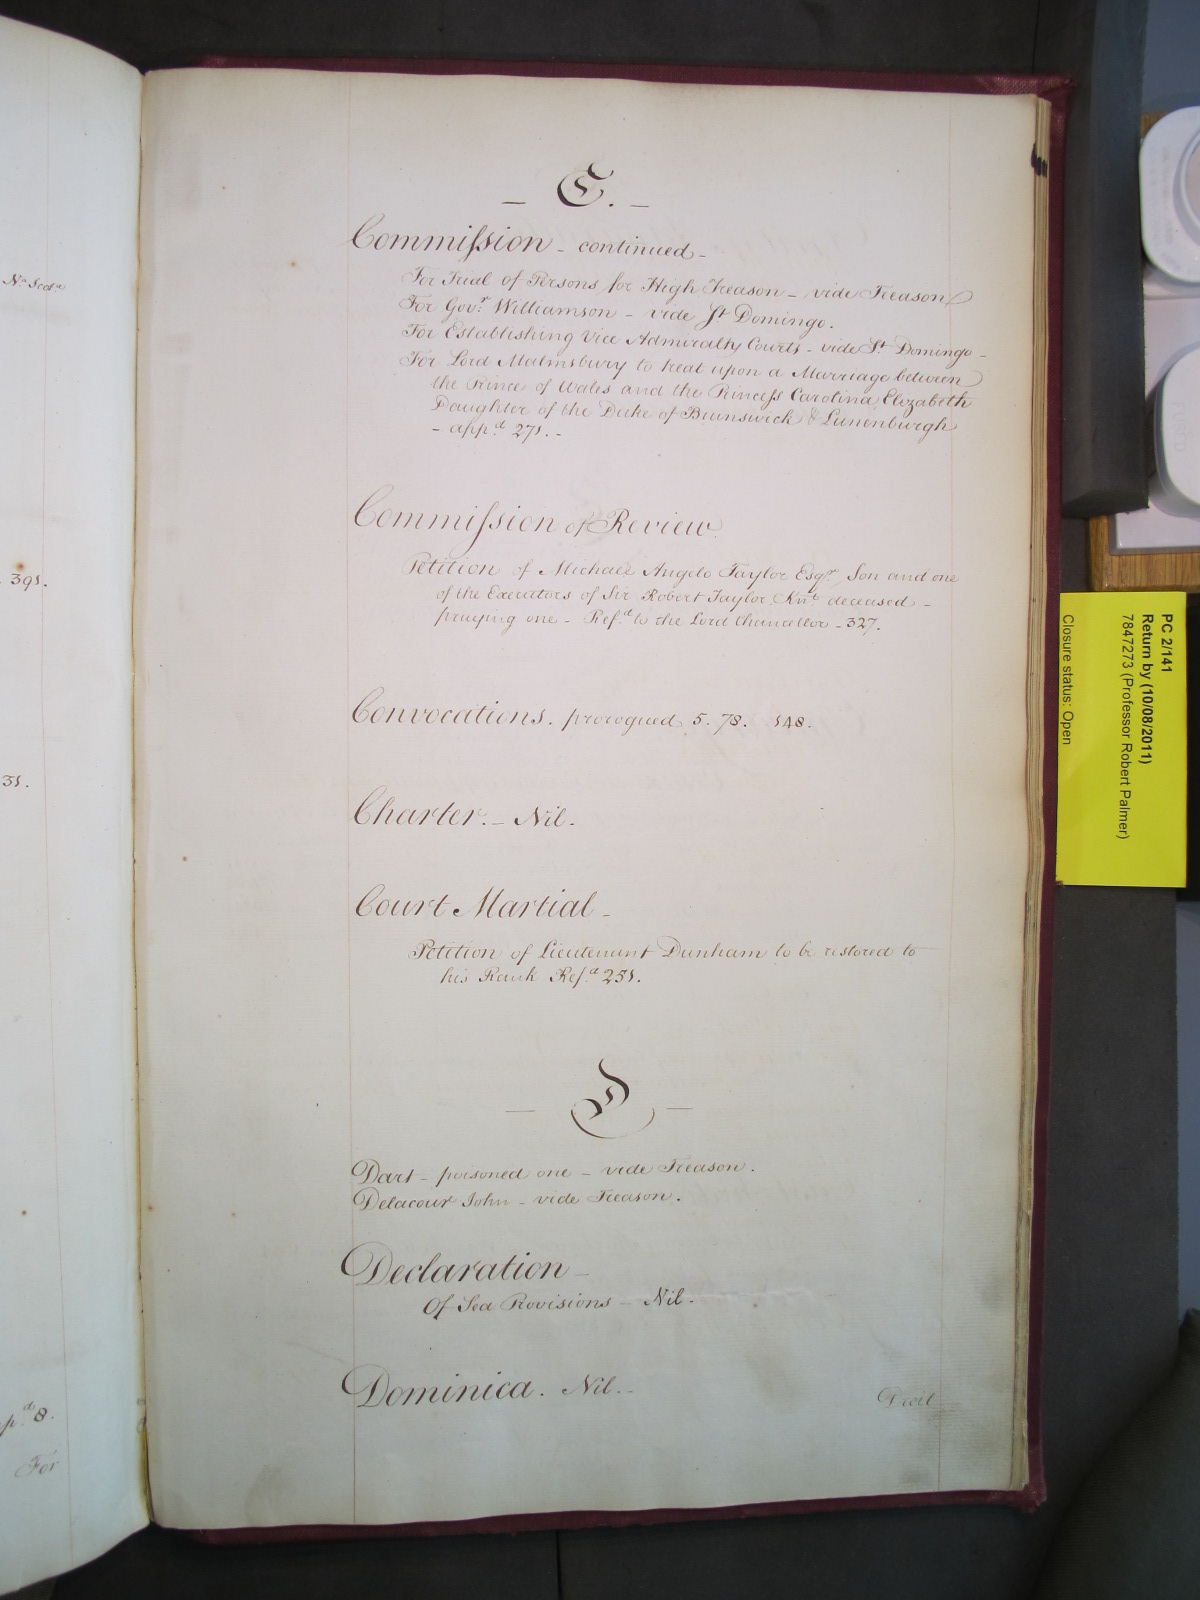 Nᵃ Scotᵃ
391.
31.
pᵈ 8.
For
— C. —
Commiſsion – continued –
For Trial of Persons for High Treason – vide Treason
For Govʳ Williamson – vide Sᵗ Domingo.
For Establishing Vice Admiralty Courts – vide Sᵗ Domingo –
For Lord Malmsbury to treat upon a Marriage between
the Prince of Wales and the Princeſs Carolina Elizabeth
Daughter of the Duke of Brunswick & Lunenburgh
– appᵈ 271. –
Commiſsion of Review.
Petition of Michael Angelo Taylor Esqʳ, Son and one
of the Executors of Sir Robert Taylor Knᵗ deceased –
praying one – Refᵈ to the Lord Chancellor – 327.
Convocations. prorogued 5. 78. 148.
Charter. – Nil.
Court Martial –
Petition of Lieutenant Dunham to be restored to
his Rank Refᵈ 251.
— D —
Dart – poisoned one – vide Treason.
Delacour John – vide Treason.
Declaration –
Of Sea Provisions – Nil –
Dominica. Nil. –
Droit
PC 2/141
Return by (10/08/2011)
7847273 (Professor Robert Palmer)
Closure status: Open